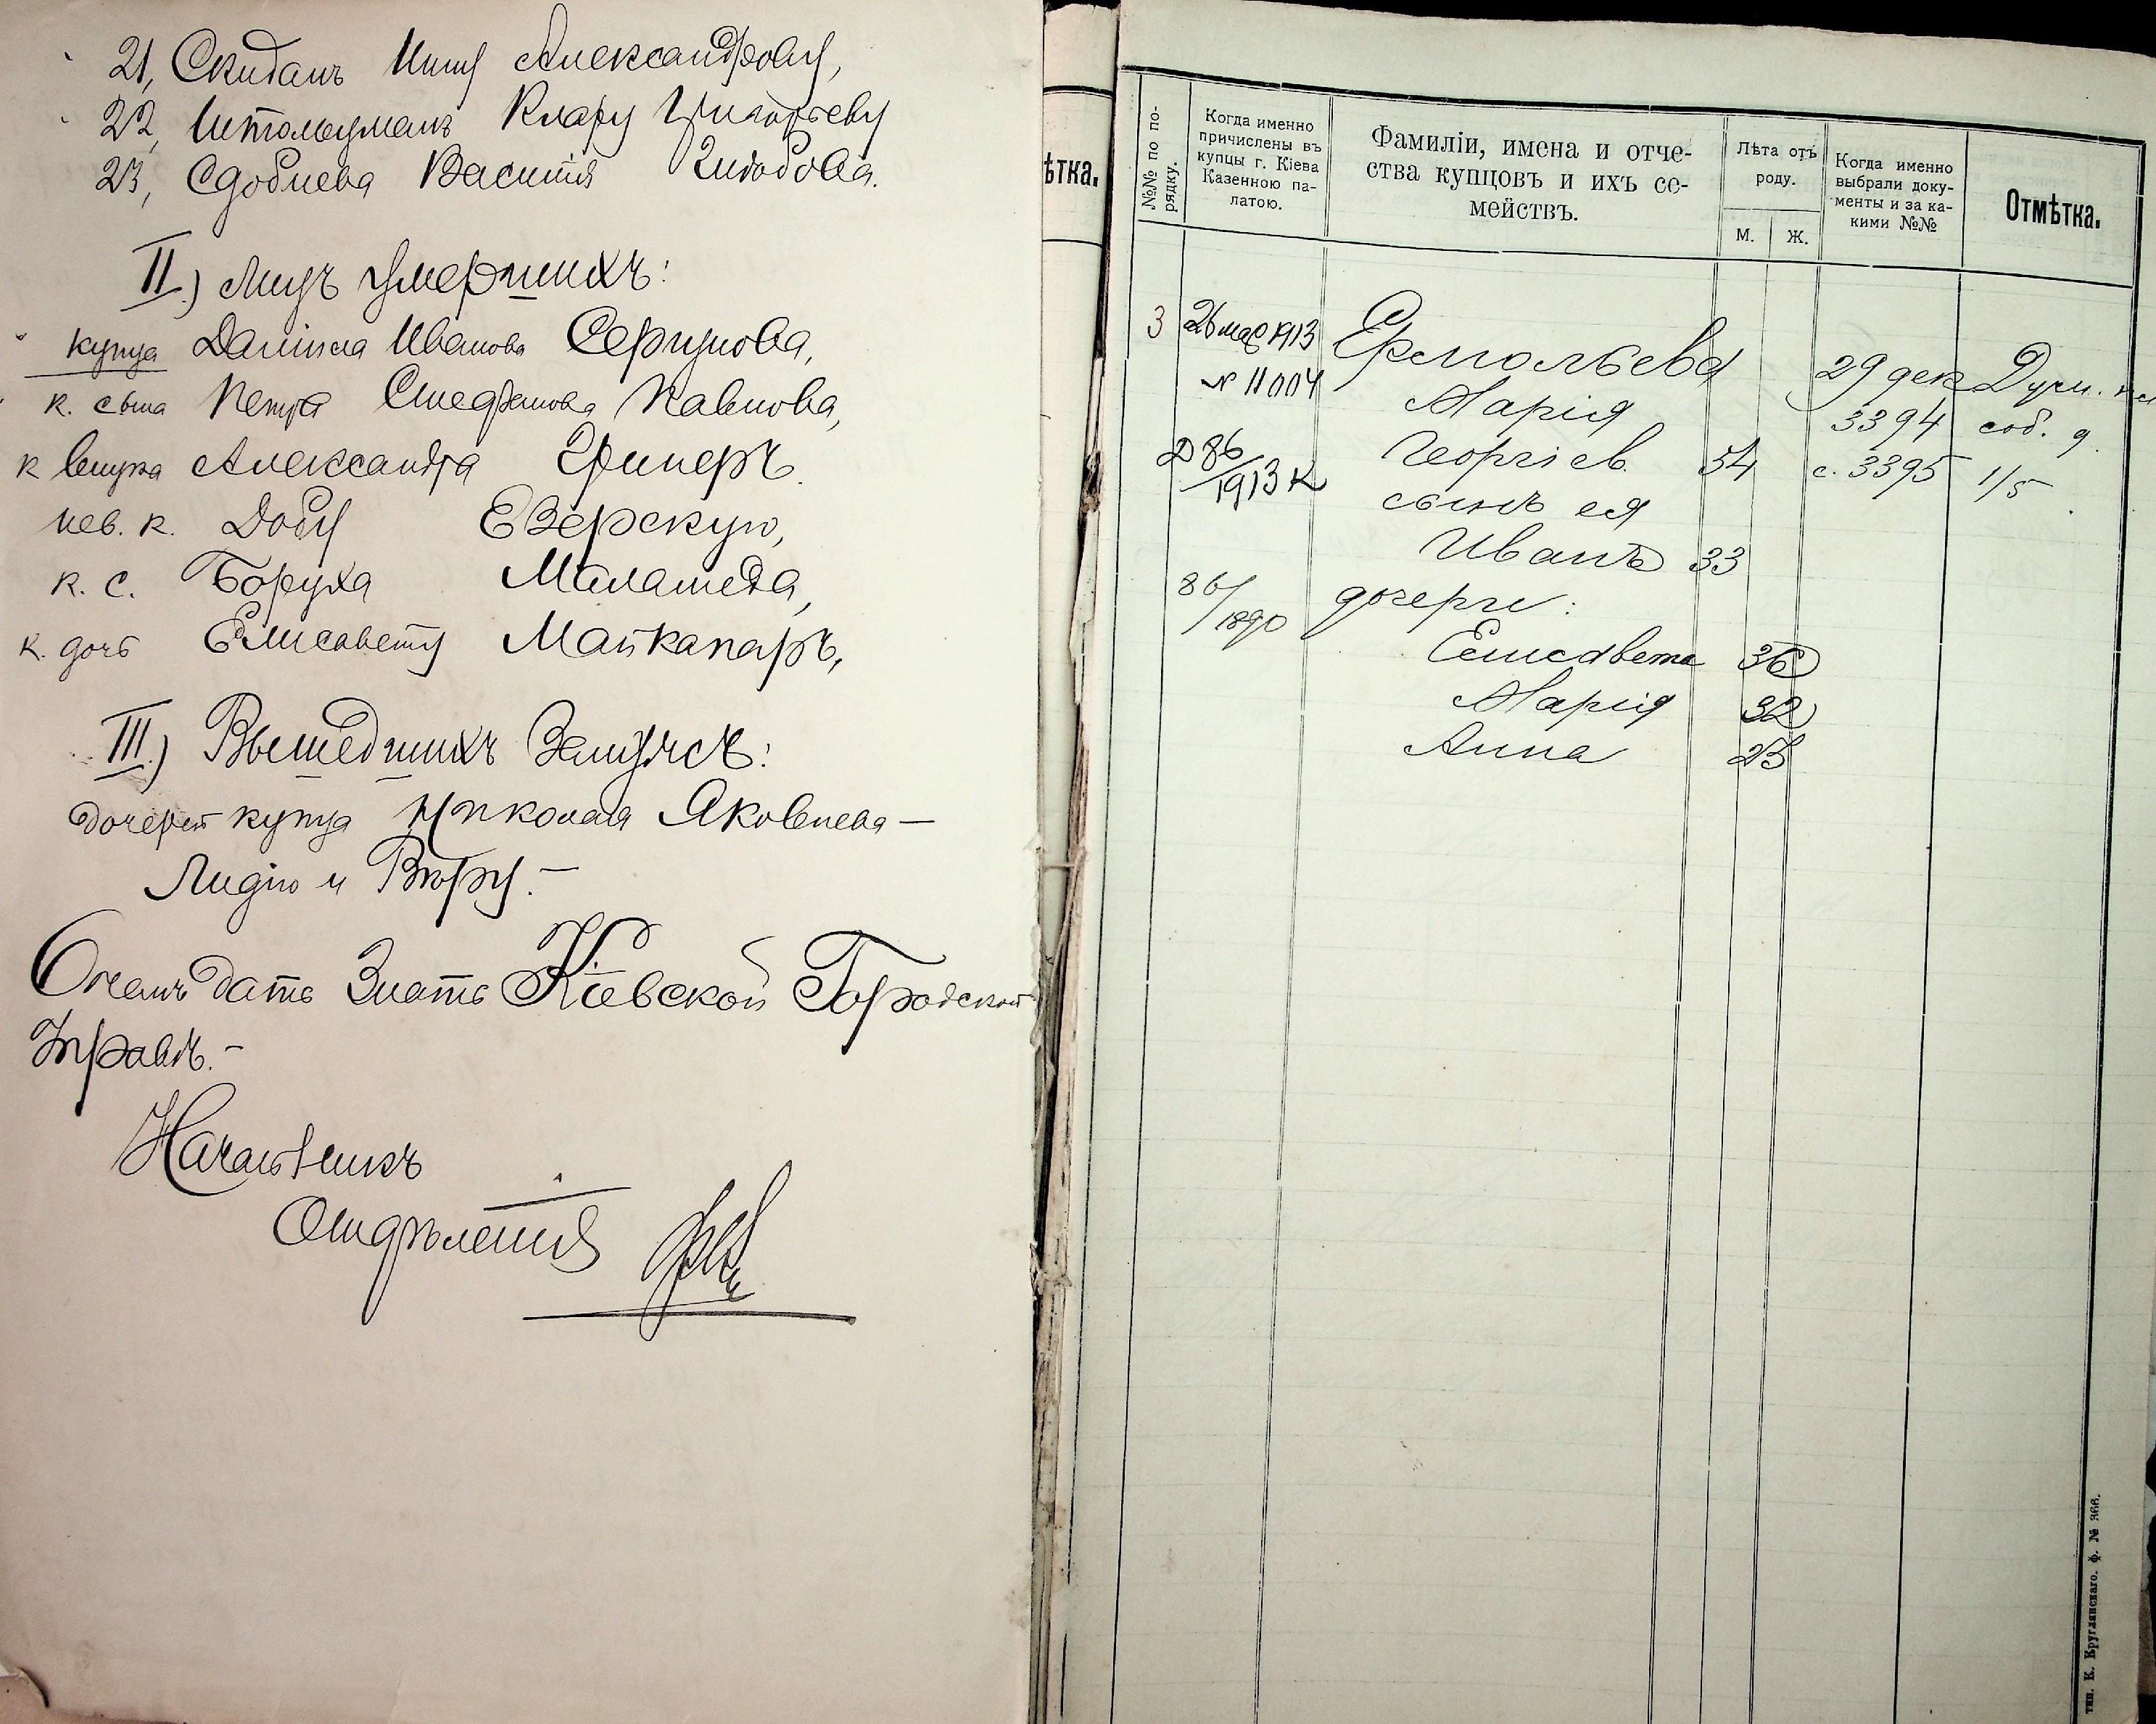 21, Скиданъ Инну Александрову,
22, Штольцманъ Клару Григорьеву
23, Сдоблева Василія
II.) Лицъ умершихъ:
купца Даніила Иванова Серпунова,
к. сына Петра Стефанова Павлова,
к внука Александра Грипера.
нев. к. Добу Езерскую,
к. с. Боруха Маламеда,
к. дочь Елисавету Майкапаръ,
III.) Вышедшихъ Замужъ:
дочерей купца Николая Яковлева —
Лидію и Вѣру. —
О чемъ дать знать Кіевской Городской
Управѣ. —
Начальникъ
Отдѣленія
ѣтка.
№№ по по-
рядку.
Когда именно
причислены въ
купцы г. Кіева
Казенною па-
латою.
Фамиліи, имена и отче-
ства купцовъ и ихъ се-
мействъ.
Лѣта отъ
роду.
М. Ж.
Когда именно
выбрали доку-
менты и за ка-
кими №№
Отмѣтка.
3 26 мар 1913 Ермольева 29 дек Дум. пл
№ 11004 Марія 3394 соб. д.
Д 86 Георгіев. 54 с. 3395 1/5
/1913 К сынъ ея
Иванъ 33
86/ дочери:
/1890
Елисавета 36
Марія 32
Анна 25
тип. К. Круглянскаго. ф. № 366.